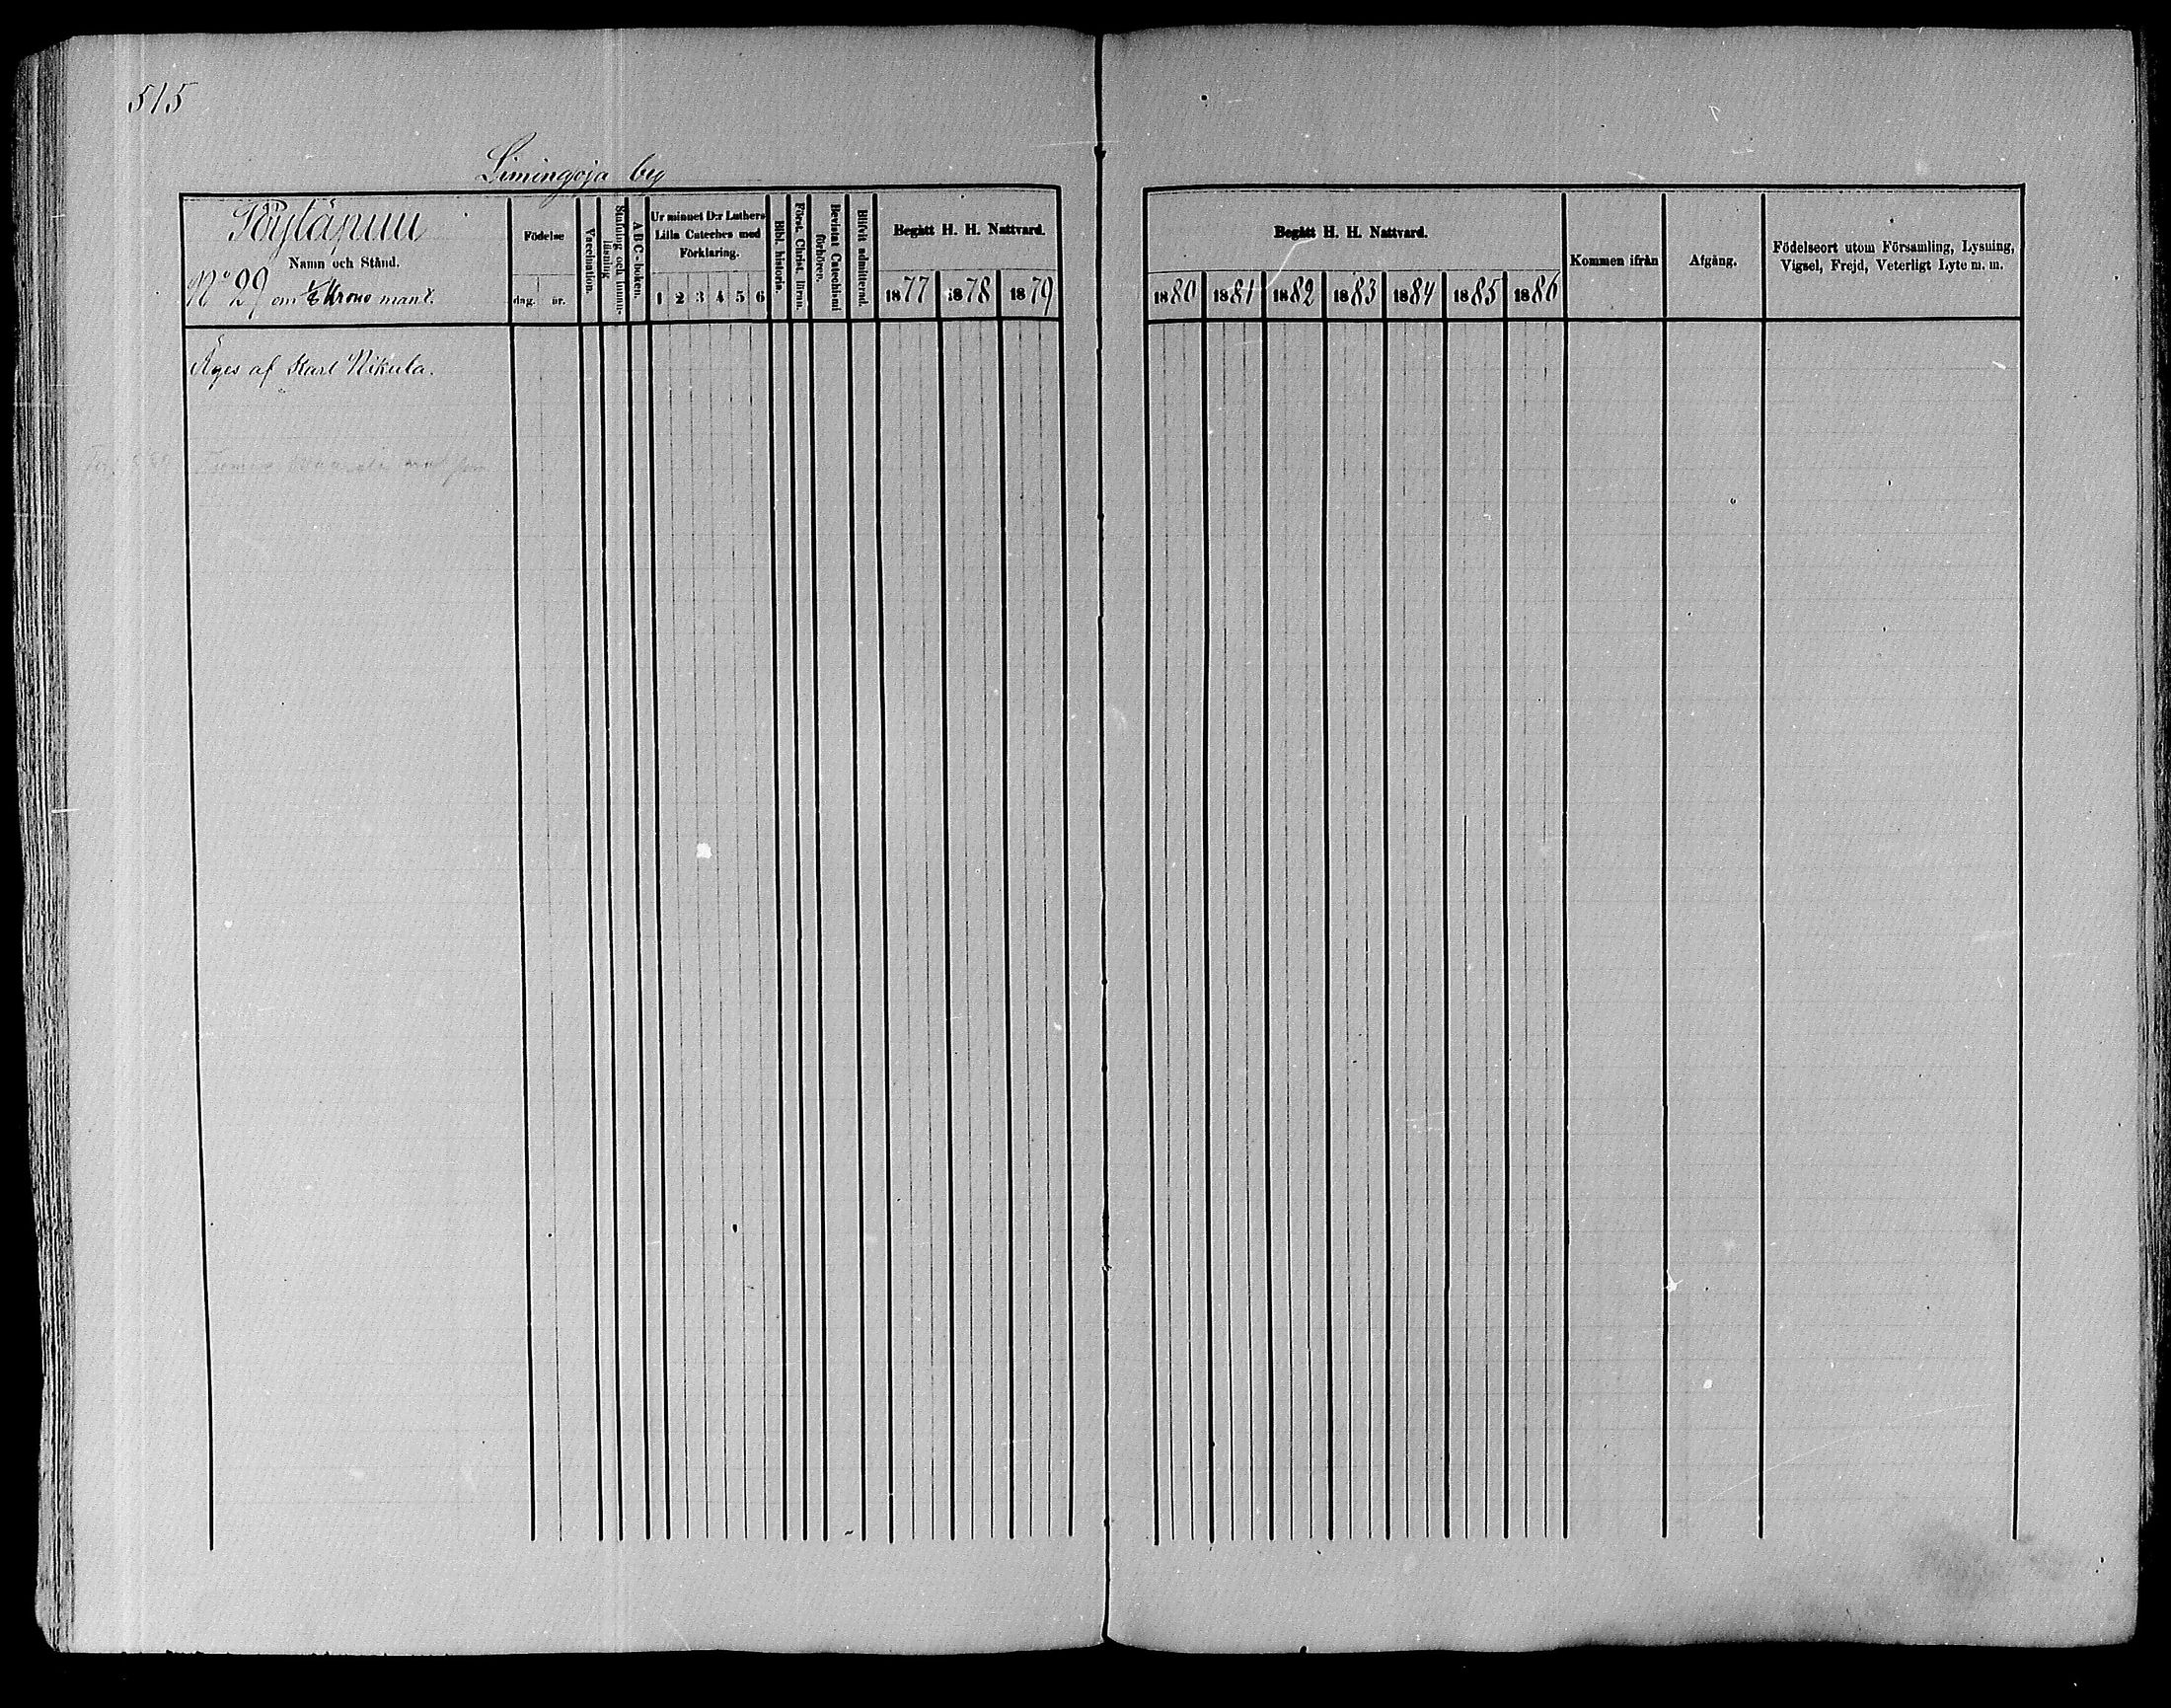 515
Limingoja by
Pöytäpuu
Namn och Stånd.
No 29 om 1/6 Krono mant.
Födelse
dag. år.
Vaccination.
Stafning och Innanläsning
A B C-boken.
Ur minnet D:r Luthers
Lilla Cateches med
Förklaring.
1 2 3 4 5 6
Bibl. historia.
Först. Christ. läran.
Bevistat Catechismi
förhören.
Blifvit admitterad.
Begått H. H. Nattvard.
1877 1878 1879
Begått H. H. Nattvard.
1880 1881 1882 1883 1884 1885 1886
Kommen ifrån
Afgång.
Födelseort utom Församling, Lysning,
Vigsel, Frejd, Veterligt Lyte m. m.
Äges af Karl Nikula.